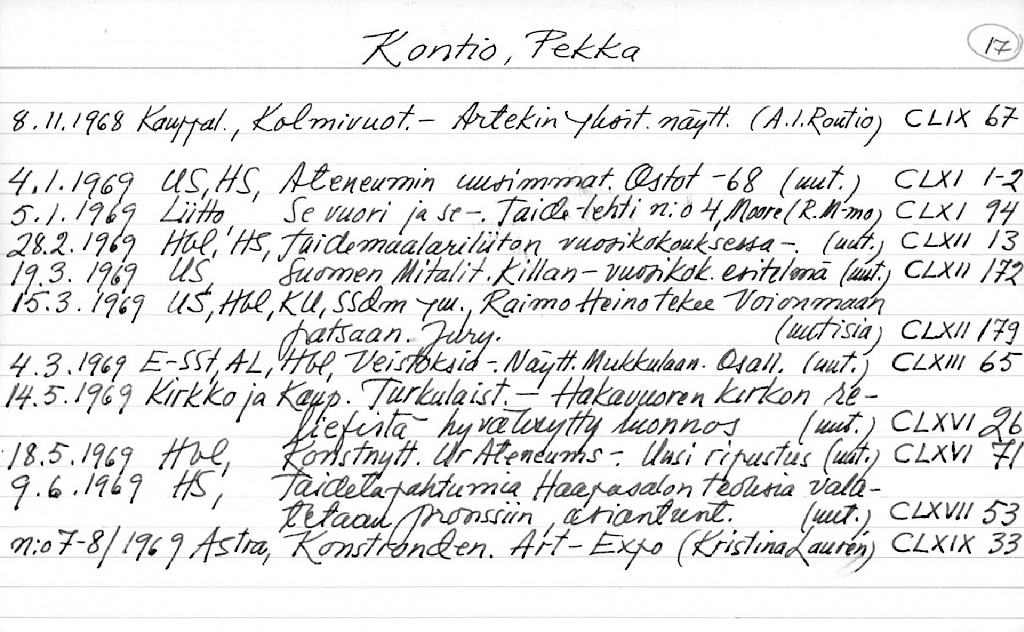 Kontio, Pekka 17
8.11.1968 Kauppal., Kolmivuot.- Artekin yksit. näytt. (A.I.Routio) CLIX 67
4.1.1969 US, HS, Ateneumin uusimmat. Ostot -68 (uut.) CLXI 1-2
5.1.1969 Liitto Se vuori ja se-. Taide-lehti n:o 4, Moore (R.M-mo) CLXI 94
28.2.1969 Hbl, HS, Taidemaalariliiton vuosikokouksessa-. (uut.) CLXII 13
19.3.1969 US, Suomen Mitalit. Killan- vuosikok. esitelmä (uut.) CLXII 172
15.3.1969 US, Hbl, KU, SSdm ym., Raimo Heino tekee Voionmaan
patsaan. Jury. (uutisia) CLXII 179
4.3.1969 E-SSt, AL, Hbl, Veistoksia-. Näytt. Mukkulaan. Osall. (uut.) CLXIII 65
14.5.1969 Kirkko ja Kaup. Turkulaist.- Hakavuoren kirkon re-
liefistä hyväksytty luonnos (uut.) CLXVI 26
18.5.1969 Hbl, Konstnytt. Ur Ateneums-. Uusi ripustus (uut.) CLXVI 71
9.6.1969 HS, Taidetapahtumia Haapasalon teoksia vala-
tetaan pronssiin, asiantunt. (uut.) CLXVII 53
n:o 7-8/1969 Astra, Konstronden. Art-Expo (Kristina Laurén) CLXIX 33